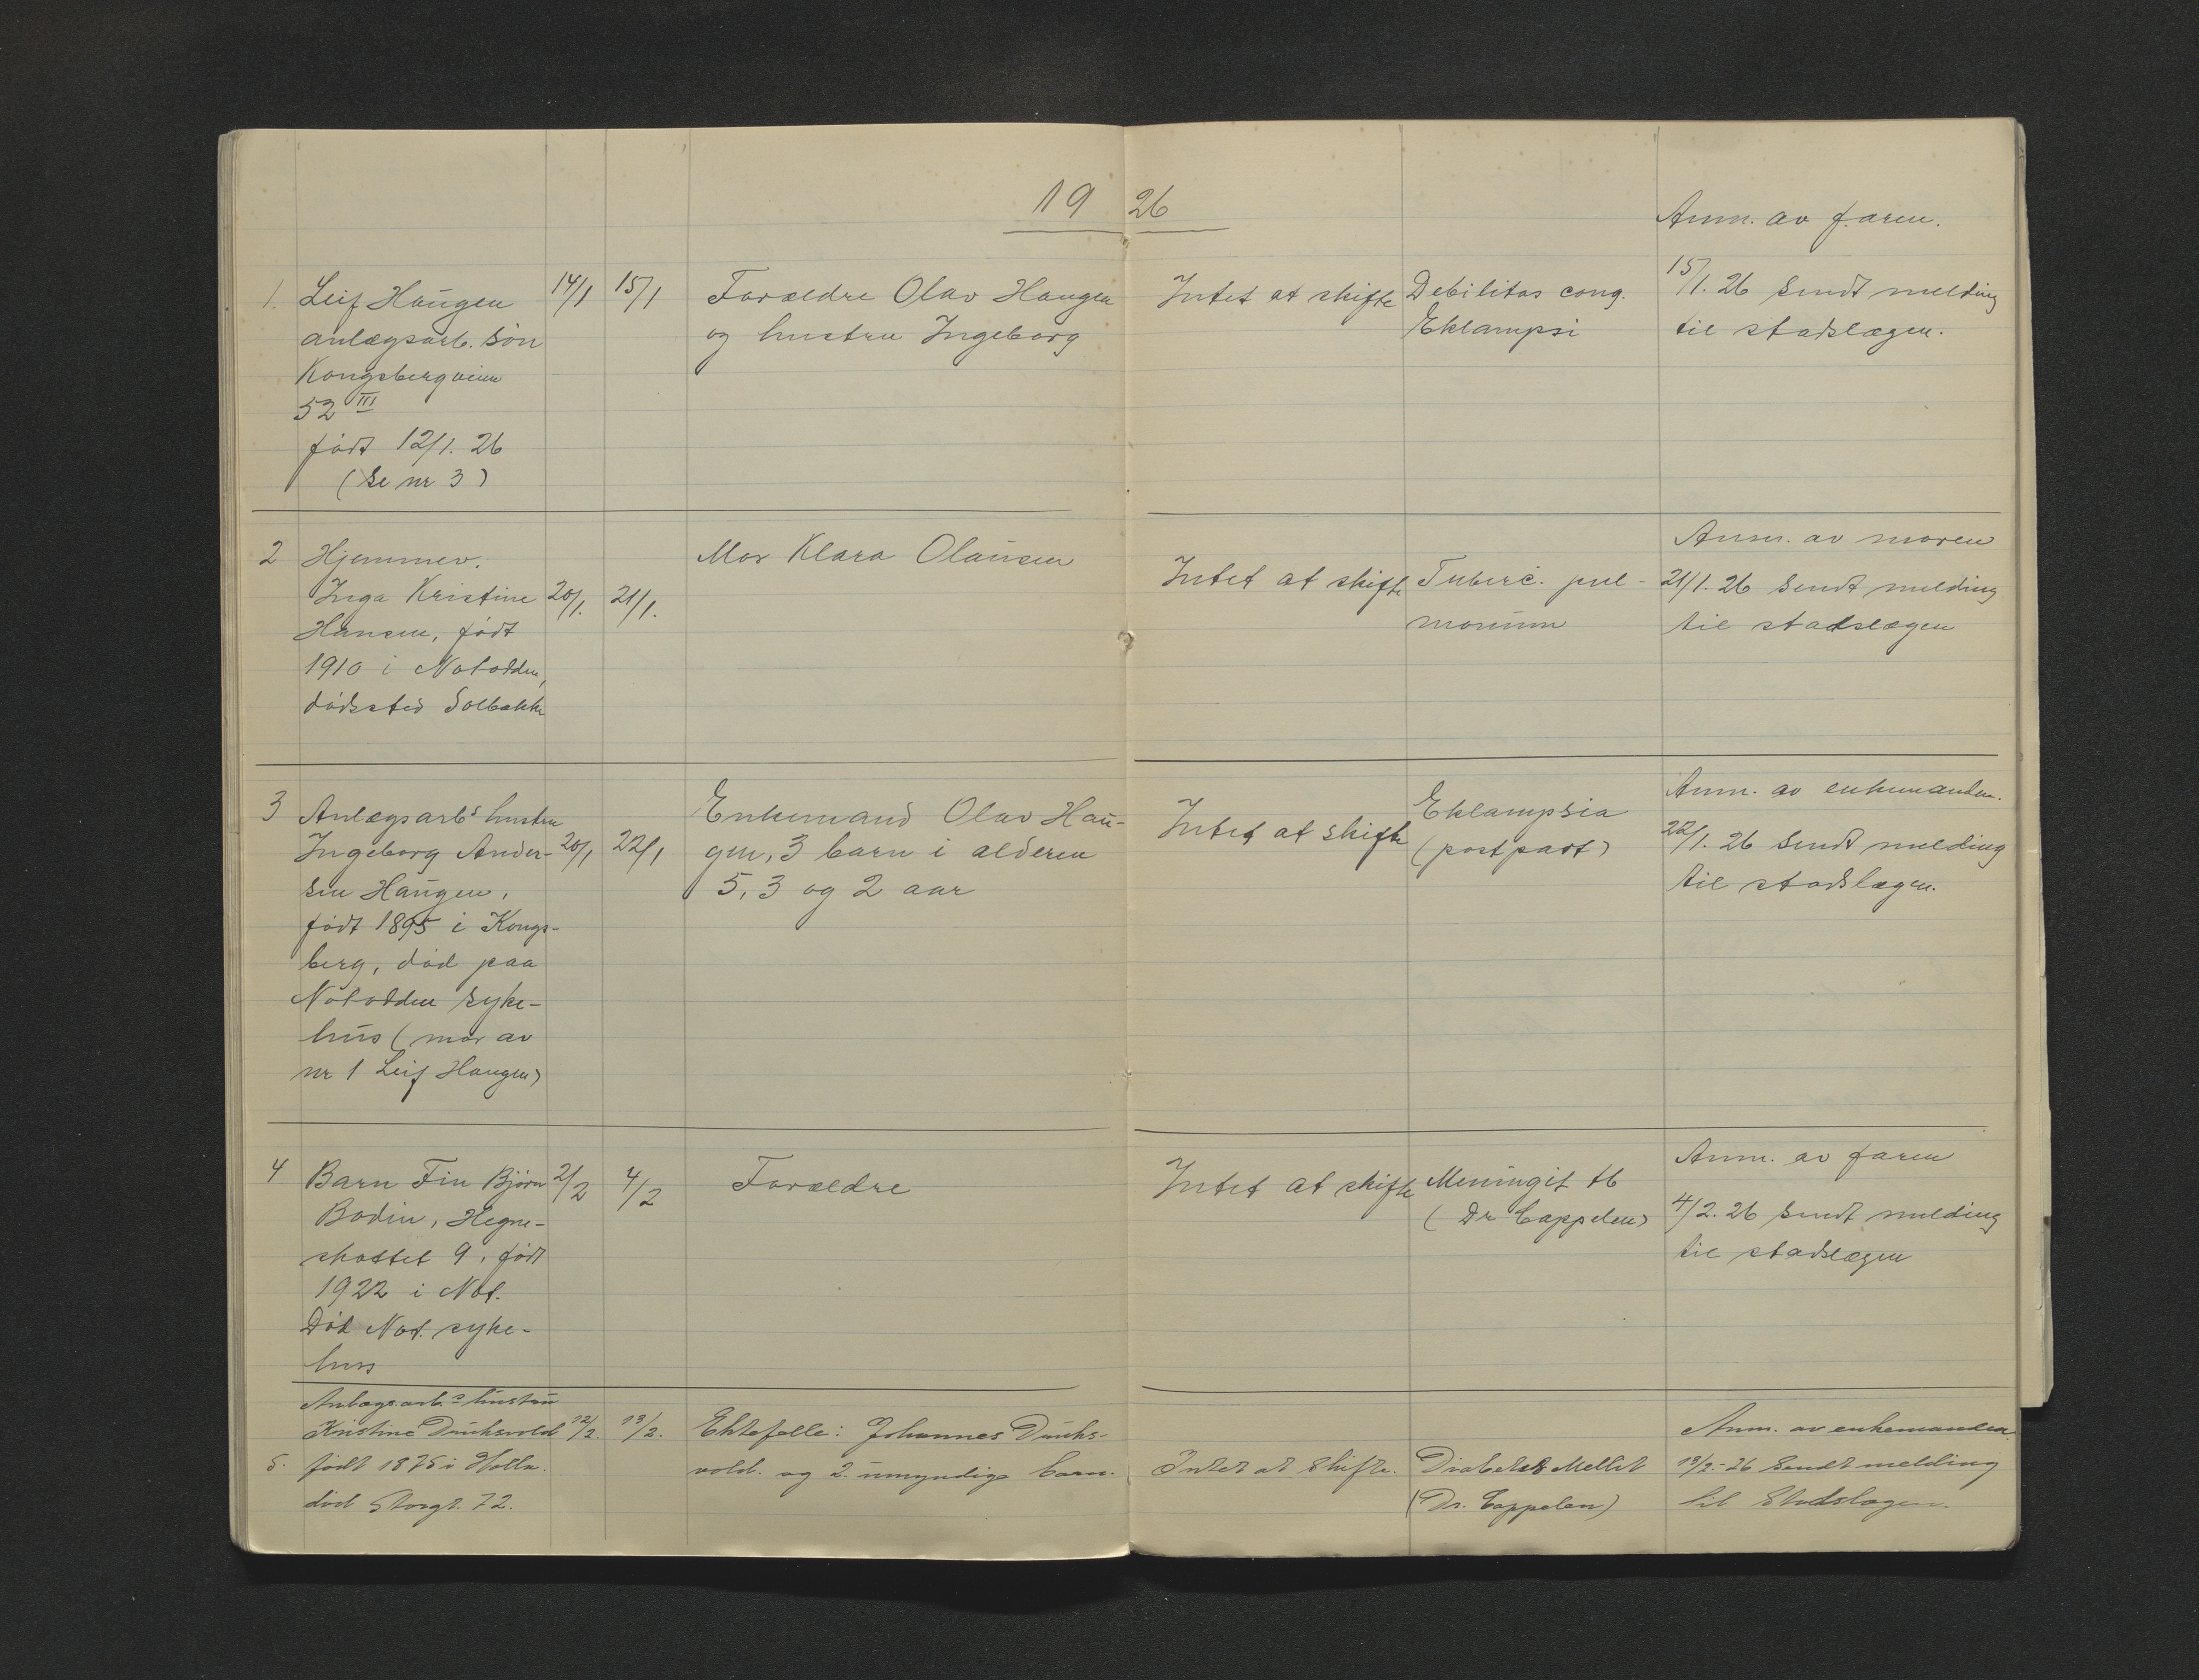 19 26
Anm. av faren.
1. Leif Haugen 14/1 15/1 Forældre Olav Haugen Intet at skifte Debilitas cong. 15/1. 26 sendt melding
anlægsarb. søn og hustru Ingeborg Eklampsi til stadslægen.
Kongsbergveien
52 III
født 12/1. 26
(Se nr 3)
2 Hjemmev. Mor Klara Olausen Anm. av moren
Inga Kristine 20/1. 21/1. Intet at skifte Tuberc. pul- 21/1. 26 sendt melding
Hansen, født monum til stadslægen
1910 i Notodden,
dødssted Solbakken
3 Anlægsarbs hustru Enkemand Olav Hau- Eklampsia Anm. av enkemanden.
Ingeborg Ander- 20/1 22/1 gen, 3 barn i alderen Intet at skifte (post part) 22/1. 26 sendt melding
sen Haugen, 5, 3 og 2 aar til stadslægen.
født 1895 i Kongs-
berg, død paa
Notodden syke-
hus (mor av
nr 1 Leif Haugen)
4 Barn Fin Bjørn 2/2 4/2 Forældre Intet at skifte Meningit tb Anm. av faren
Bodin, Hegne- (Dr Cappelen) 4/2. 26 sendt melding
skottet 9, født til stadslægen
1922 i Not.
Død Not. syke-
hus
Anlægsarb.s hustru
Kristine 12/2. 13/2. Ektefelle: Johannes Anm. av enkemanden
5. født 1875 i Holla. vold. og 2. umyndige barn. Intet at skifte. Diabetes Mellit 13/2.-26 Sendt melding
død Storgt. 72. (Dr. Cappelen) til Stadslægen.